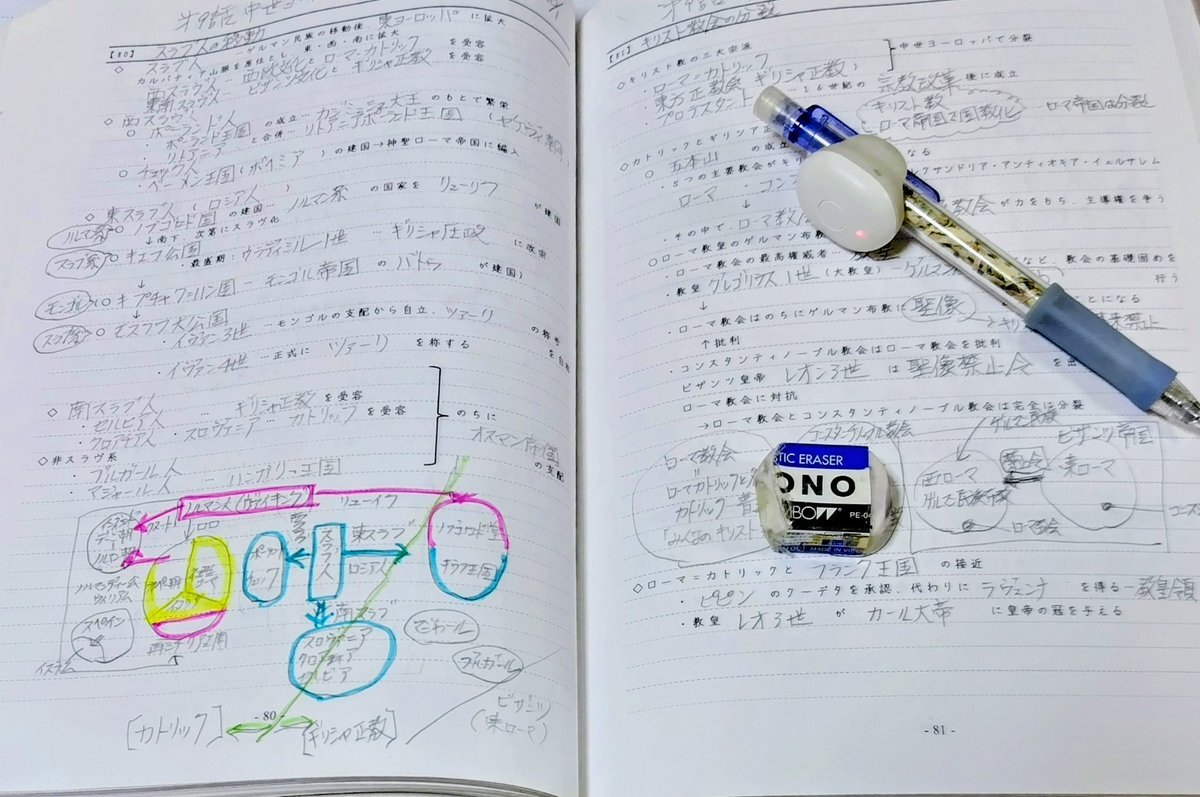 才9話 中世ヨ
【80】 スラブ人の移動
◇ スラブ人 …ゲルマン民族の移動後、東ヨーロッパに拡大
カルパティア山脈を原住とし、東・西・南に拡大
西スラブ人… 西欧文化とローマ・カトリック を受容
東南スラブ人… ビザンツ文化とギリシャ正教 を受容
◇ 西スラブ人
○ ポーランド人
・ポーランド王国 の成立…カジミェシュ大王 のもとで繁栄
・リトアニア と合併…リトアニアポーランド王国
○ チェック人
・ベーメン王国(ボヘミア) の建国→神聖ローマ帝国に編入
◇ 東スラブ人(ロシア人)
ノルマン系 ○ ノブゴロド国 の建国…ノルマン系 の国家を リューリク が建国
↓南下、次第にスラヴ化
スラブ系 ○ キエフ公国
・最盛期:ウラディミル1世 …ギリシャ正教 に改宗
モンゴル ○ キプチャクハン国 …モンゴル帝国の バトゥ が建国)
スラブ系 ○ モスクワ大公国
・イヴァン3世 …モンゴルの支配から自立、ツァーリ の称号を自称
・イヴァン4世 …正式に ツァーリ を称する
◇ 南スラブ人
・セルビア人 … ギリシャ正教 を受容
・クロアチア人・スロヴェニア… カトリック を受容
のちに
オスマン帝国
の支配
◇非スラヴ系
・ブルガール人
・マジャール人 … ハンガリー王国
ノルマン人(ヴァイキング) リューリク
ロロ
スラブ人
東スラブ
ロシア人
ノブゴロド国
キエフ王国
ポーランド
チェック
南スラブ
スロヴェニア
クロアチア
セルビア
ブルガール
スペイン
イスラム
両シチリア王国
ビザンツ
(東ローマ)
[カトリック]
[ギリシャ正教]
- 80 -
才9話
【81】 キリスト教会の分裂
◇キリスト教の三大宗派
・ローマ=カトリック
・東方正教会(ギリシャ正教)
中世ヨーロッパで分裂
・プロテスタント 16世紀の 宗教改革 後に成立
キリスト教
ローマ帝国で国教化
ローマ帝国は分裂
◇カトリックとギリシア正
○ 五本山 の成立
・5つの主要教会がキリ なる
ローマ ・コン レクサンドリア・アンティオキア・イェルサレム
・その中で、ローマ教 教会 が力をもち、主導権を争う
○ローマ教皇のゲルマン布教
・ローマ教会の最高権威者…
・教皇 グレゴリウス1世 (大教皇)…ゲルマ など、教会の基礎固めを行う
↓
・ローマ教会はのちにゲルマン布教に 聖像 ことになる
↑批判
・コンスタンティノープル教会はローマ教会を批判
ビザンツ皇帝 レオン3世 は 聖像禁止令 を出
ローマ教会に対抗
→ローマ教会とコンスタンティノープル教会は完全に分裂
ローマ教会
コンスタンティノープル教会
ゲルマン民族
ビザンツ帝国
西ローマ
東ローマ
ローマ教会
STIC ERASER
ONO
MBOW PE-0
MADE IN VIE
◇ローマ=カトリックと フランク王国 の接近
・ピピン のクーデタを承認、代わりに ラヴェンナ を得る…教皇領
・教皇 レオ3世 が カール大帝 に皇帝の冠を与える
- 81 -